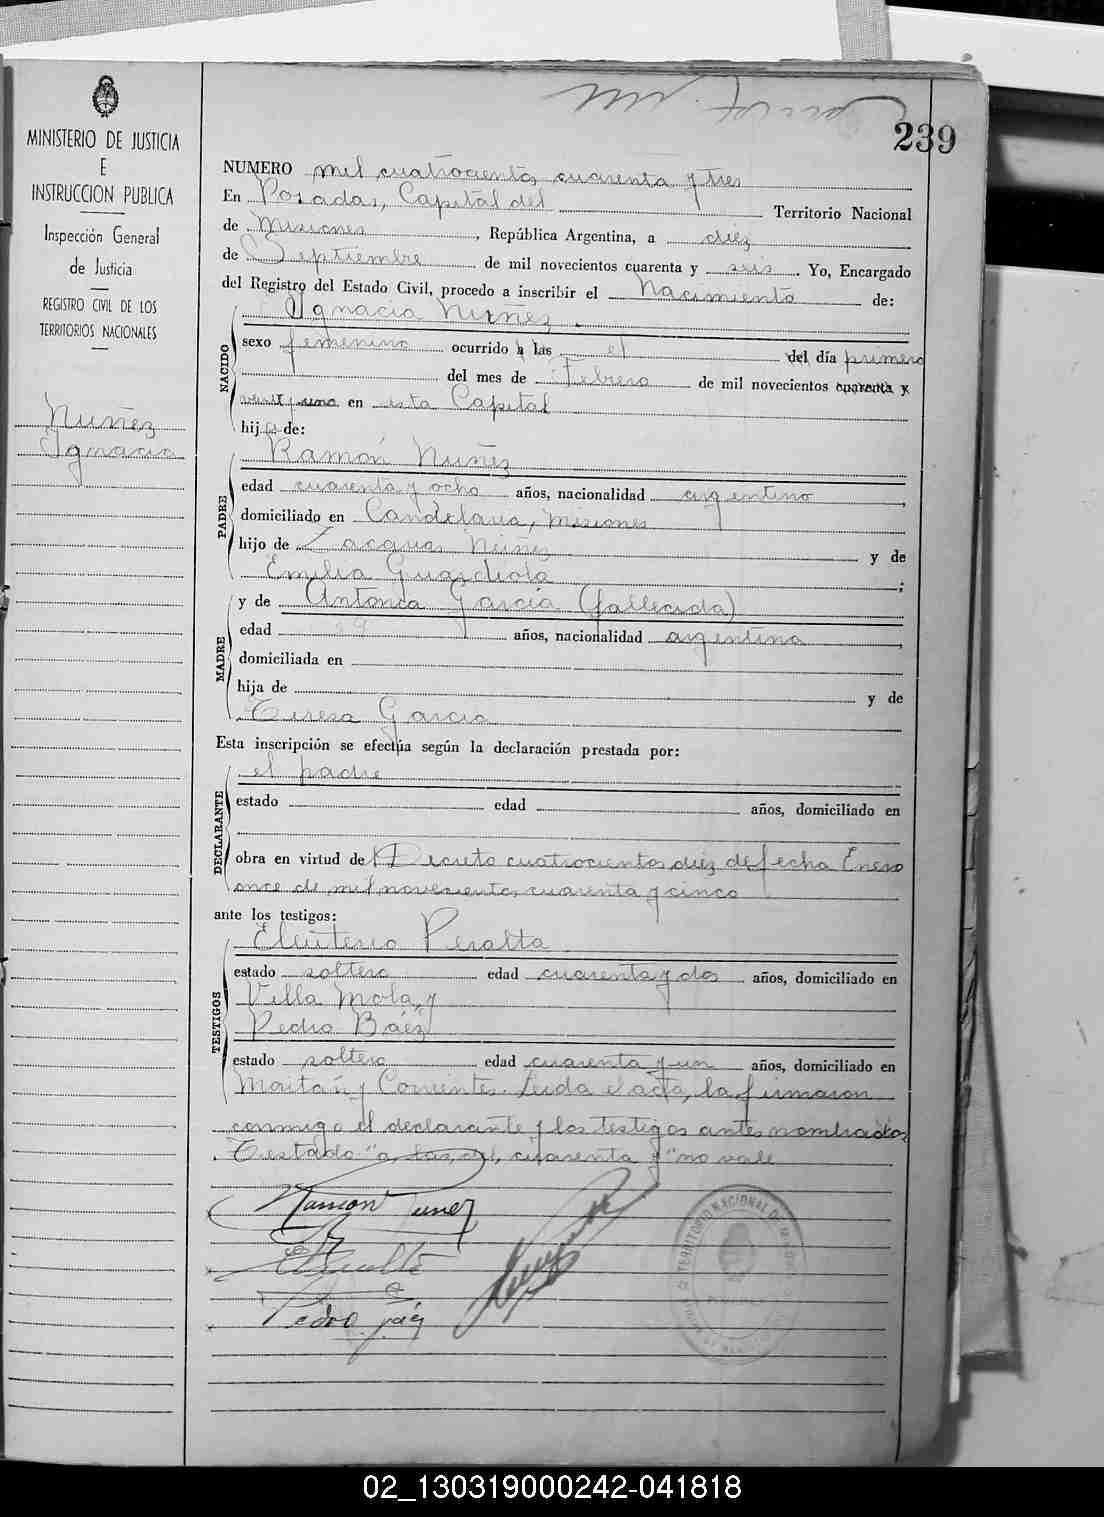 239
MINISTERIO DE JUSTICIA
E
INSTRUCCION PUBLICA
Inspección General
de Justicia
REGISTRO CIVIL DE LOS
TERRITORIOS NACIONALES
Nuñez
Ygnacia
NUMERO mil cuatrocientos cuarenta y tres
En Posadas, Capital del Territorio Nacional
de Misiones, República Argentina, a diez
de Septiembre de mil novecientos cuarenta y seis. Yo, Encargado
del Registro del Estado Civil, procedo a inscribir el Nacimiento de:
NACIDO
Ygnacia Nuñez
sexo femenino ocurrido a las el del día primero
del mes de Febrero de mil novecientos cuarenta y
veinte y uno en esta Capital
hija de:
PADRE
Ramón Nuñez
edad cuarenta y ocho años, nacionalidad argentino
domiciliado en Candelaria, Misiones
hijo de Nuñez y de
Emilia Guardiola;
MADRE
y de Antonia García (fallecida)
edad años, nacionalidad argentina
domiciliada en
hija de y de
Teresa Garcia
Esta inscripción se efectúa según la declaración prestada por:
DECLARANTE
el padre
estado edad años, domiciliado en
obra en virtud del Decreto cuatrocientos diez de fecha Enero
once de mil novecientos cuarenta y cinco
ante los testigos:
TESTIGOS
Eleuterio Peralta
estado soltero edad cuarenta y dos años, domiciliado en
Villa Mola, y
Pedro Báez
estado soltero edad cuarenta y un años, domiciliado en
Maitan y Corrientes. Leida el acta, la firmaron
conmigo el declarante y los testigos antes nombrados
Testado "a, las, del, cuarenta y" no vale
Ramon Nunez
Pedro Báez
TERRITORIO NACIONAL DE MISIONES
02_130319000242-041818